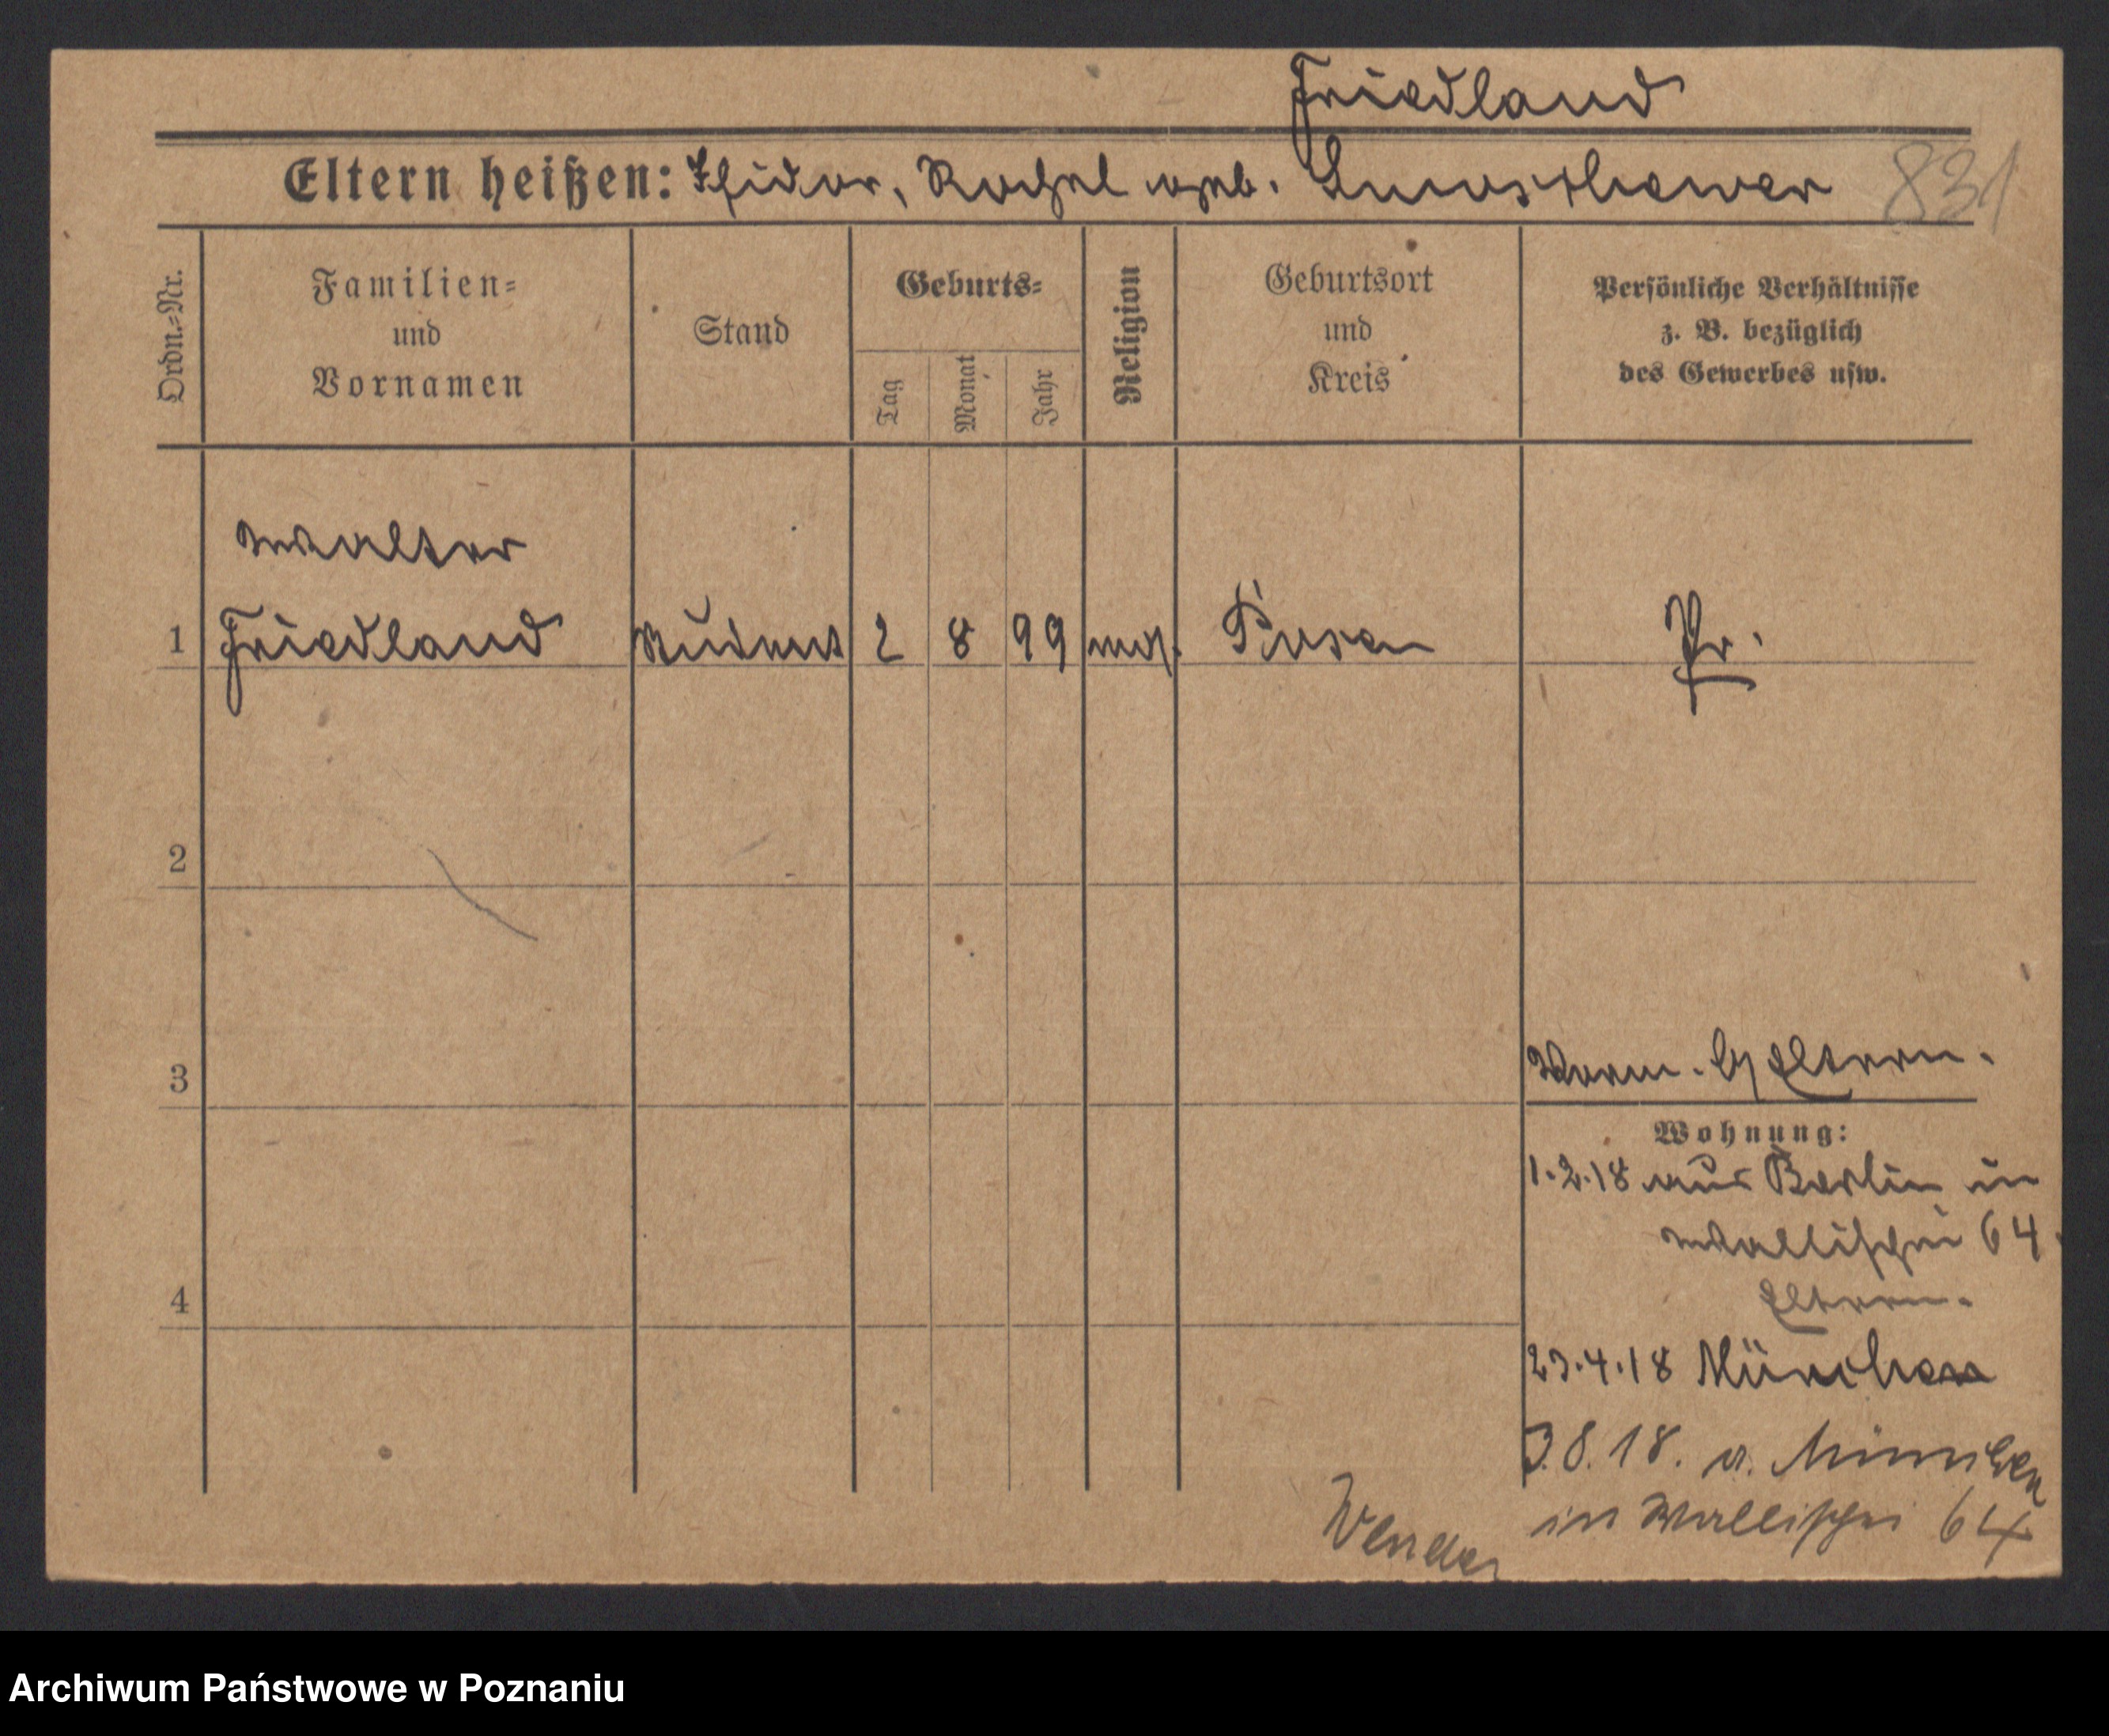 Friedland
831
Eltern heißen: Isidor, Rachel geb.
Ordn.-Nr.
Familien-
und
Vornamen
Stand
Geburts-
Tag
Monat
Jahr
Religion
Geburtsort
und
Kreis
Persönliche Verhältnisse
z. B. bezüglich
des Gewerbes usw.
Walter
1 Friedland Student 2 8 99 mos. Posen Pr.
2
3
Eltern.
Wohnung:
1.2.18 aus Berlin in
Wallischei 64.
Eltern.
4
23.4.18 München
3.8.18. a. München
in Wallischei 64
Wenden
Archiwum Państwowe w Poznaniu